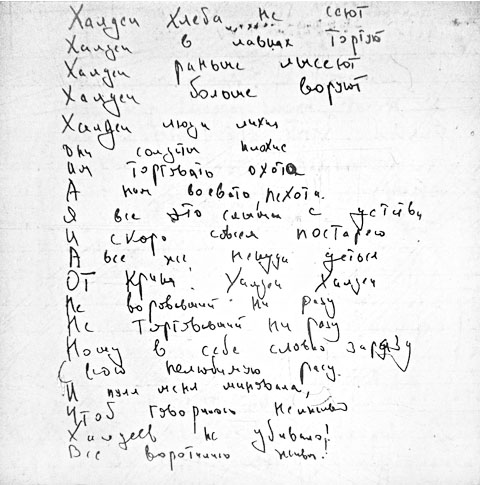 Халдеи хлеба не сеют
Халдеи в лавках торгуют
Халдеи раньше лысеют
Халдеи больше воруют
Халдеи люди лихие
они солдаты плохие
им торговать охота
А нам воевать, пехота.
Я все это слышал с детства
И скоро совсем постарею
А все же некуда деться
От крика: Халдеи Халдеи
Не воровавший ни разу
Не торговавший ни разу
Ношу в себе словно заразу
Свою нелюбимую расу.
И пуля меня миновала,
Чтоб говорилось нелживо
Халдеев не убивало!
Все воротились живы!